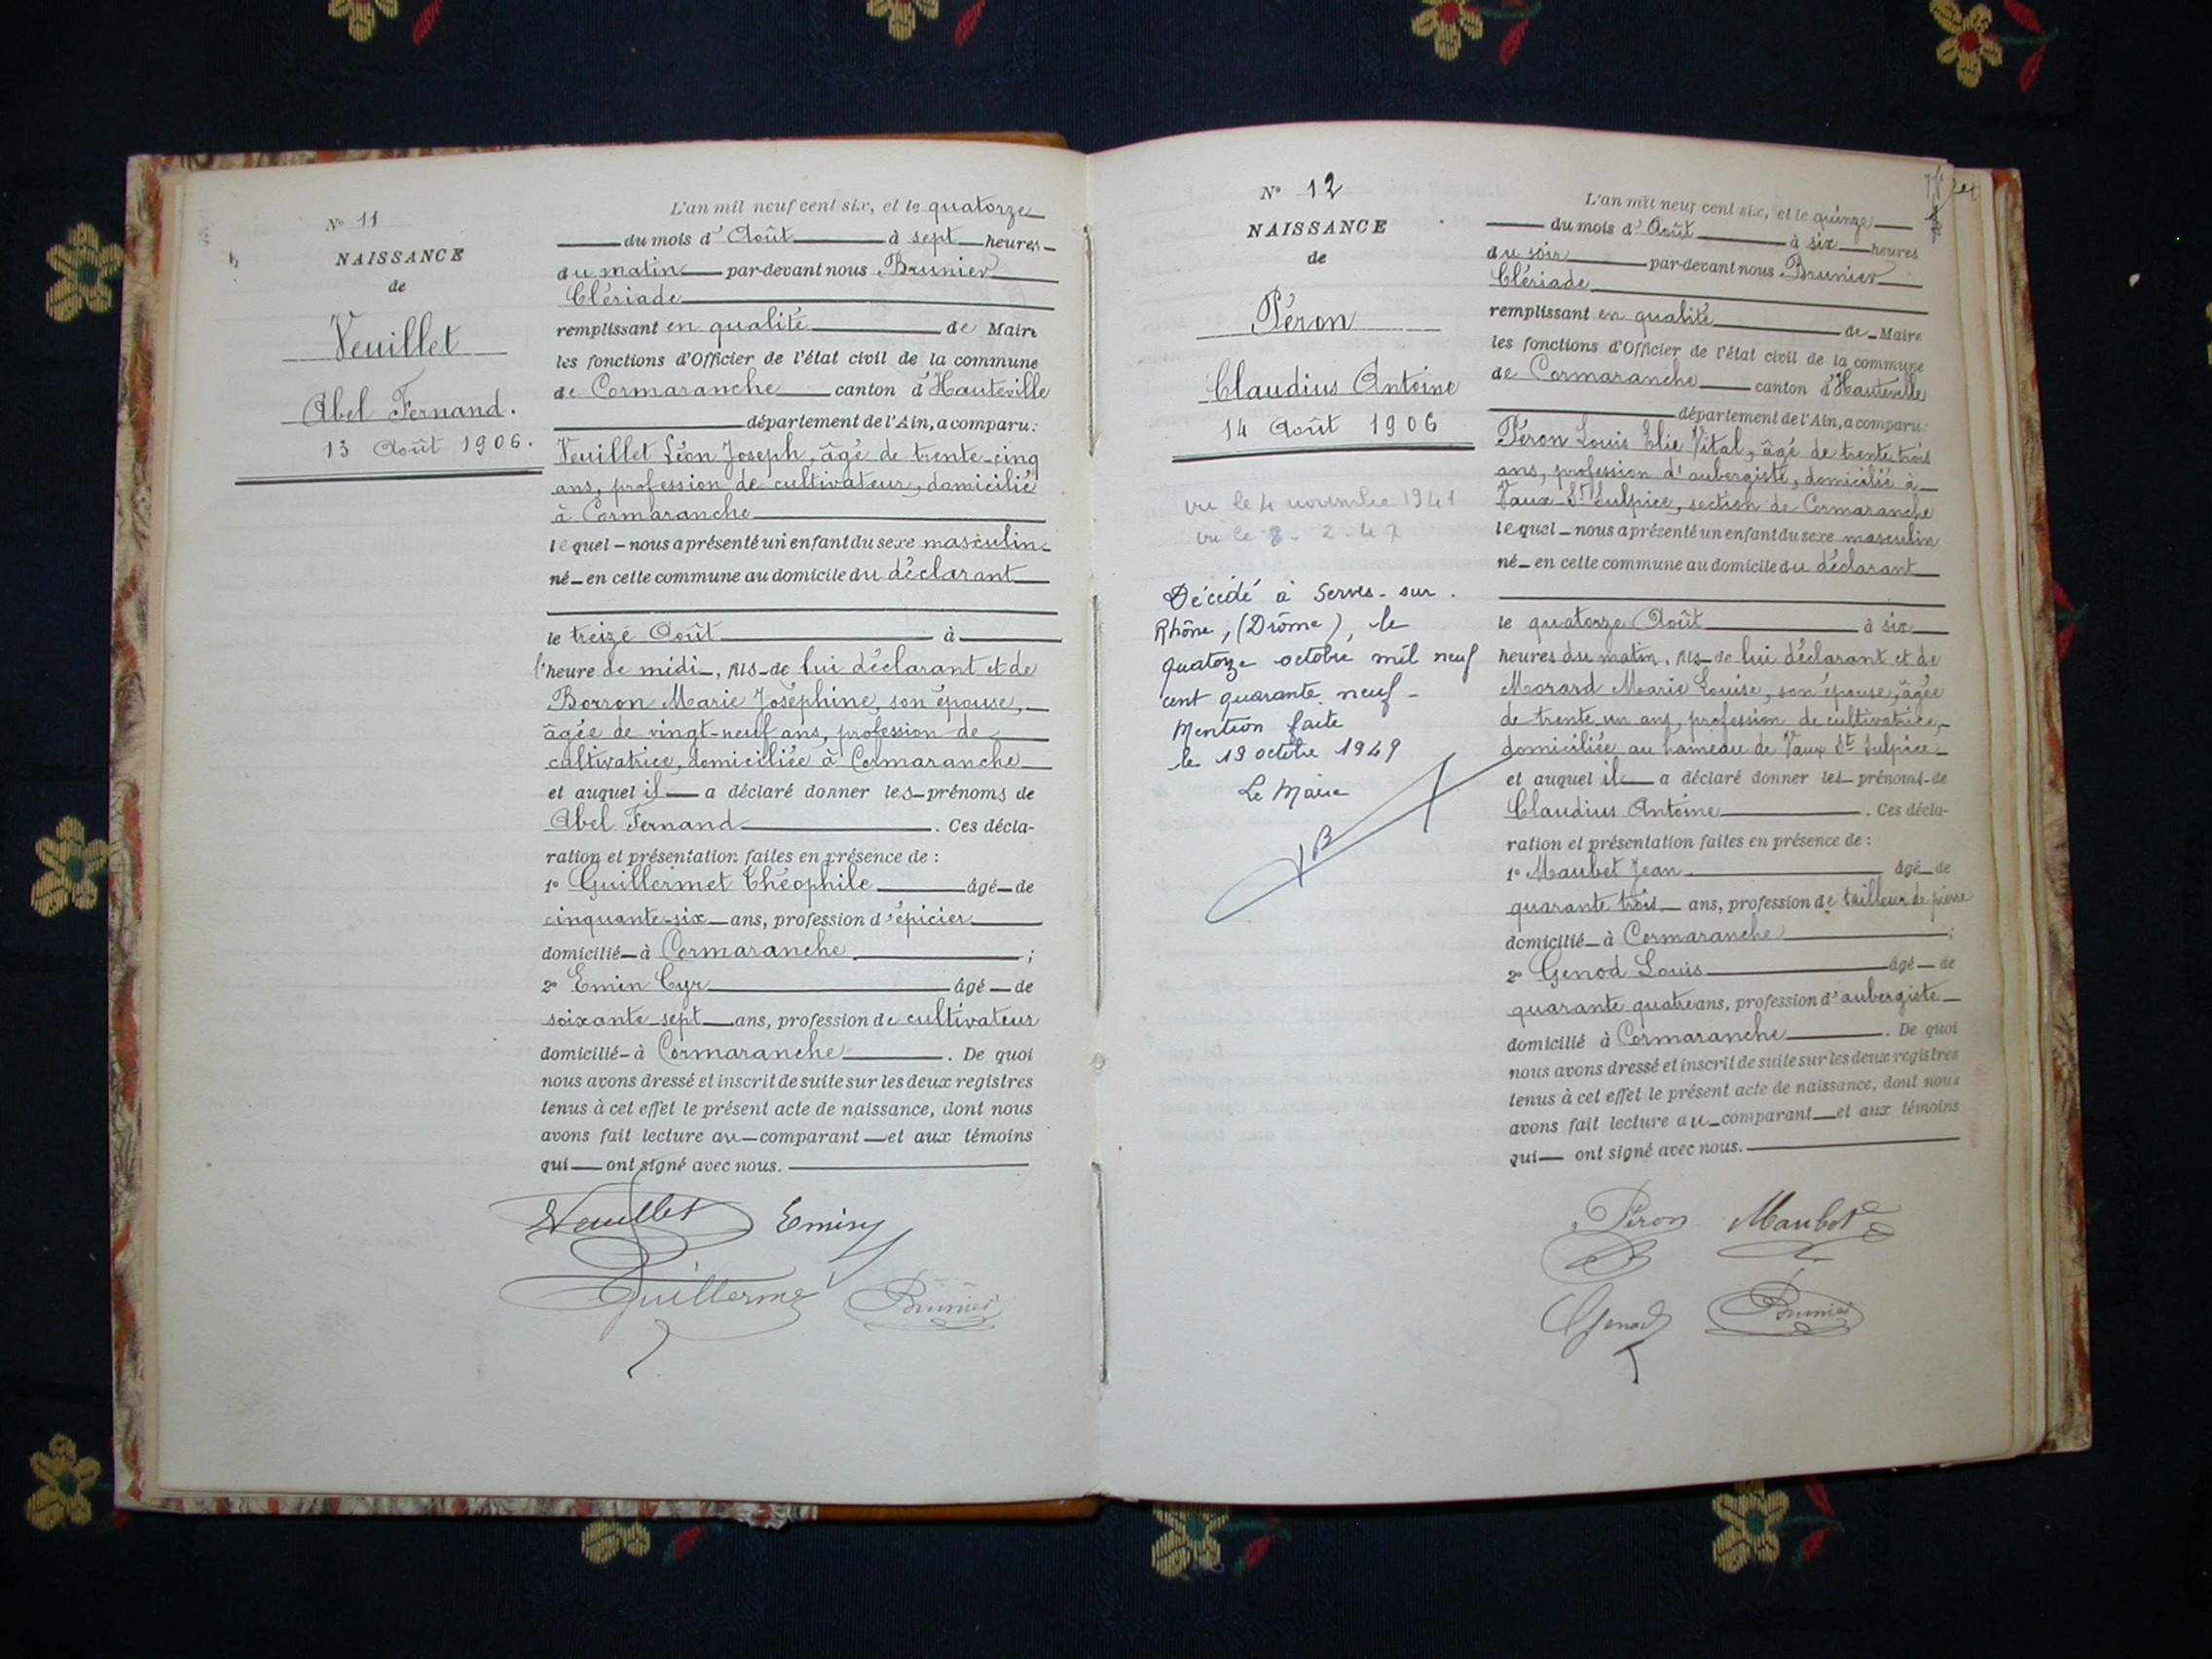 N° 11
NAISSANCE
de
Veuillet
Abel Fernand.
13 Août 1906.
L'an mil neuf cent six, et le quatorze
du mois d'Août à sept heures
du matin par-devant nous Brunier
Clériade
remplissant en qualité de Maire
les fonctions d'Officier de l'état civil de la commune
de Cormaranche canton d'Hauteville
département de l'Ain, a comparu:
Veuillet Léon Joseph, âgé de trente-cinq
ans, profession de cultivateur, domicilié
à Cormaranche
lequel nous a présenté un enfant du sexe masculin
né en cette commune au domicile du déclarant
le treize Août à
l'heure de midi, fils de lui déclarant et de
Borron Marie Joséphine, son épouse,
âgée de vingt-neuf ans, profession de
cultivatrice, domiciliée à Cormaranche
et auquel il a déclaré donner les prénoms de
Abel Fernand. Ces décla-
ration et présentation faites en présence de :
1° Guillermet Théophile âgé de
cinquante-six ans, profession d'épicier
domicilié à Cormaranche ;
2° Emin Cyr âgé de
soixante-sept ans, profession de cultivateur
domicilié à Cormaranche. De quoi
nous avons dressé et inscrit de suite sur les deux registres
tenus à cet effet le présent acte de naissance, dont nous
avons fait lecture au comparant et aux témoins
qui ont signé avec nous.
Veuillet Emin
Guillermet Brunier
N° 12
NAISSANCE
de
Péron
Claudius Antoine
14 Août 1906
vu le 4 novembre 1941
vu le 8-2-47
Décédé à Serves-sur-
Rhône, (Drôme), le
quatorze octobre mil neuf
cent quarante neuf -
Mention faite
le 19 octobre 1949
Le Maire
L'an mil neuf cent six, et le quinze
du mois d'Août à six heures
du soir par-devant nous Brunier
Clériade
remplissant en qualité de Maire
les fonctions d'Officier de l'état civil de la commune
de Cormaranche canton d'Hauteville
département de l'Ain, a comparu:
Péron Louis Elie Vital, âgé de trente trois
ans, profession d'aubergiste, domicilié à
Vaux-St Sulpice, section de Cormaranche
lequel nous a présenté un enfant du sexe masculin
né en cette commune au domicile du déclarant
le quatorze Août à six
heures du matin, fils de lui déclarant et de
Morard Marie Louise, son épouse, âgée
de trente-un ans, profession de cultivatrice,
domiciliée au hameau de Vaux St Sulpice
et auquel il a déclaré donner les prénoms de
Claudius Antoine. Ces décla-
ration et présentation faites en présence de :
1° Maubet Jean âgé de
quarante trois ans, profession de tailleur de pierre
domicilié à Cormaranche ;
2° Genod Louis âgé de
quarante quatre ans, profession d'aubergiste
domicilié à Cormaranche. De quoi
nous avons dressé et inscrit de suite sur les deux registres
tenus à cet effet le présent acte de naissance, dont nous
avons fait lecture au comparant et aux témoins
qui ont signé avec nous.
Péron Maubet
Genod Brunier